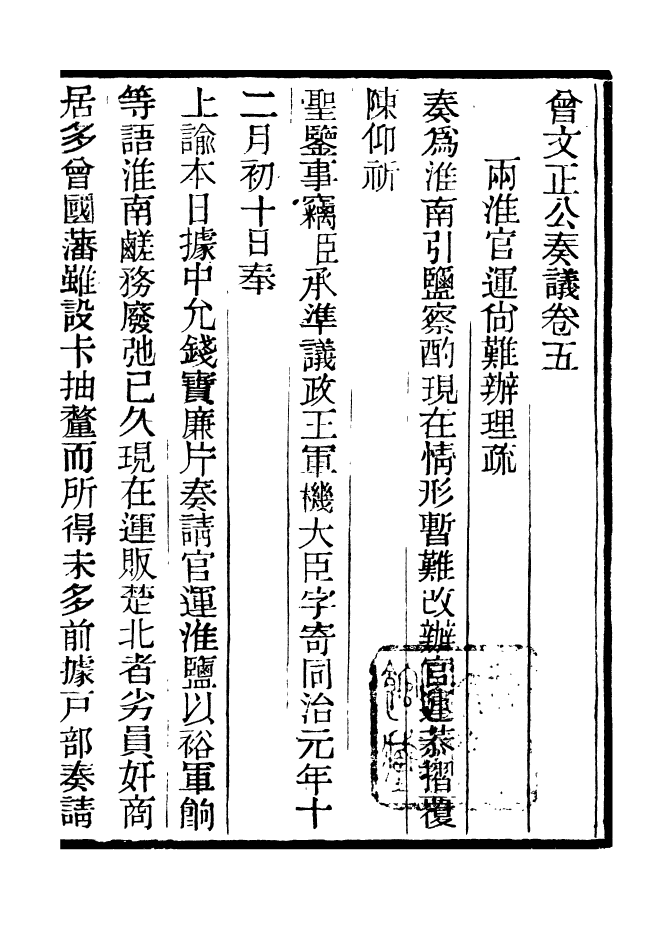 曾文正公奏議卷五
兩淮官運尙難辦理疏
奏爲淮南引鹽察酌現在情形暫難改辦官運恭摺覆
陳仰祈
聖鑒事竊臣承準議政王軍機大臣字寄同治元年十
二月初十日奉
上諭本日據中允錢寶廉片奏請官運淮鹽以裕軍餉
等語淮南鹺務廢弛已久現在運販楚北者劣員奸商
居多曾國藩雖設卡抽釐而所得未多前據戸部奏請